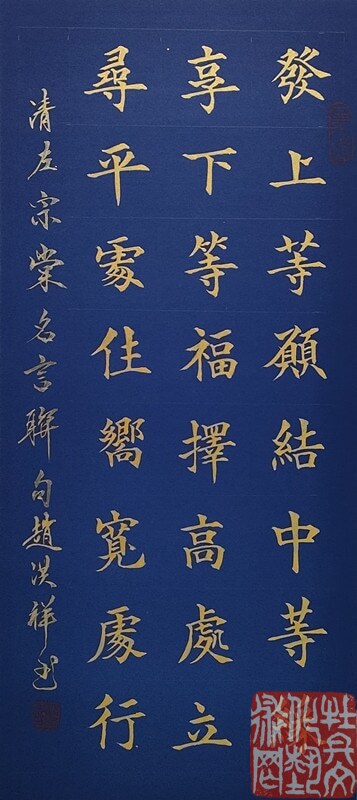 發上等願結中等
享下等福擇高處立
尋平處住嚮寬處行
清左宗棠名言聯句趙洪祥书